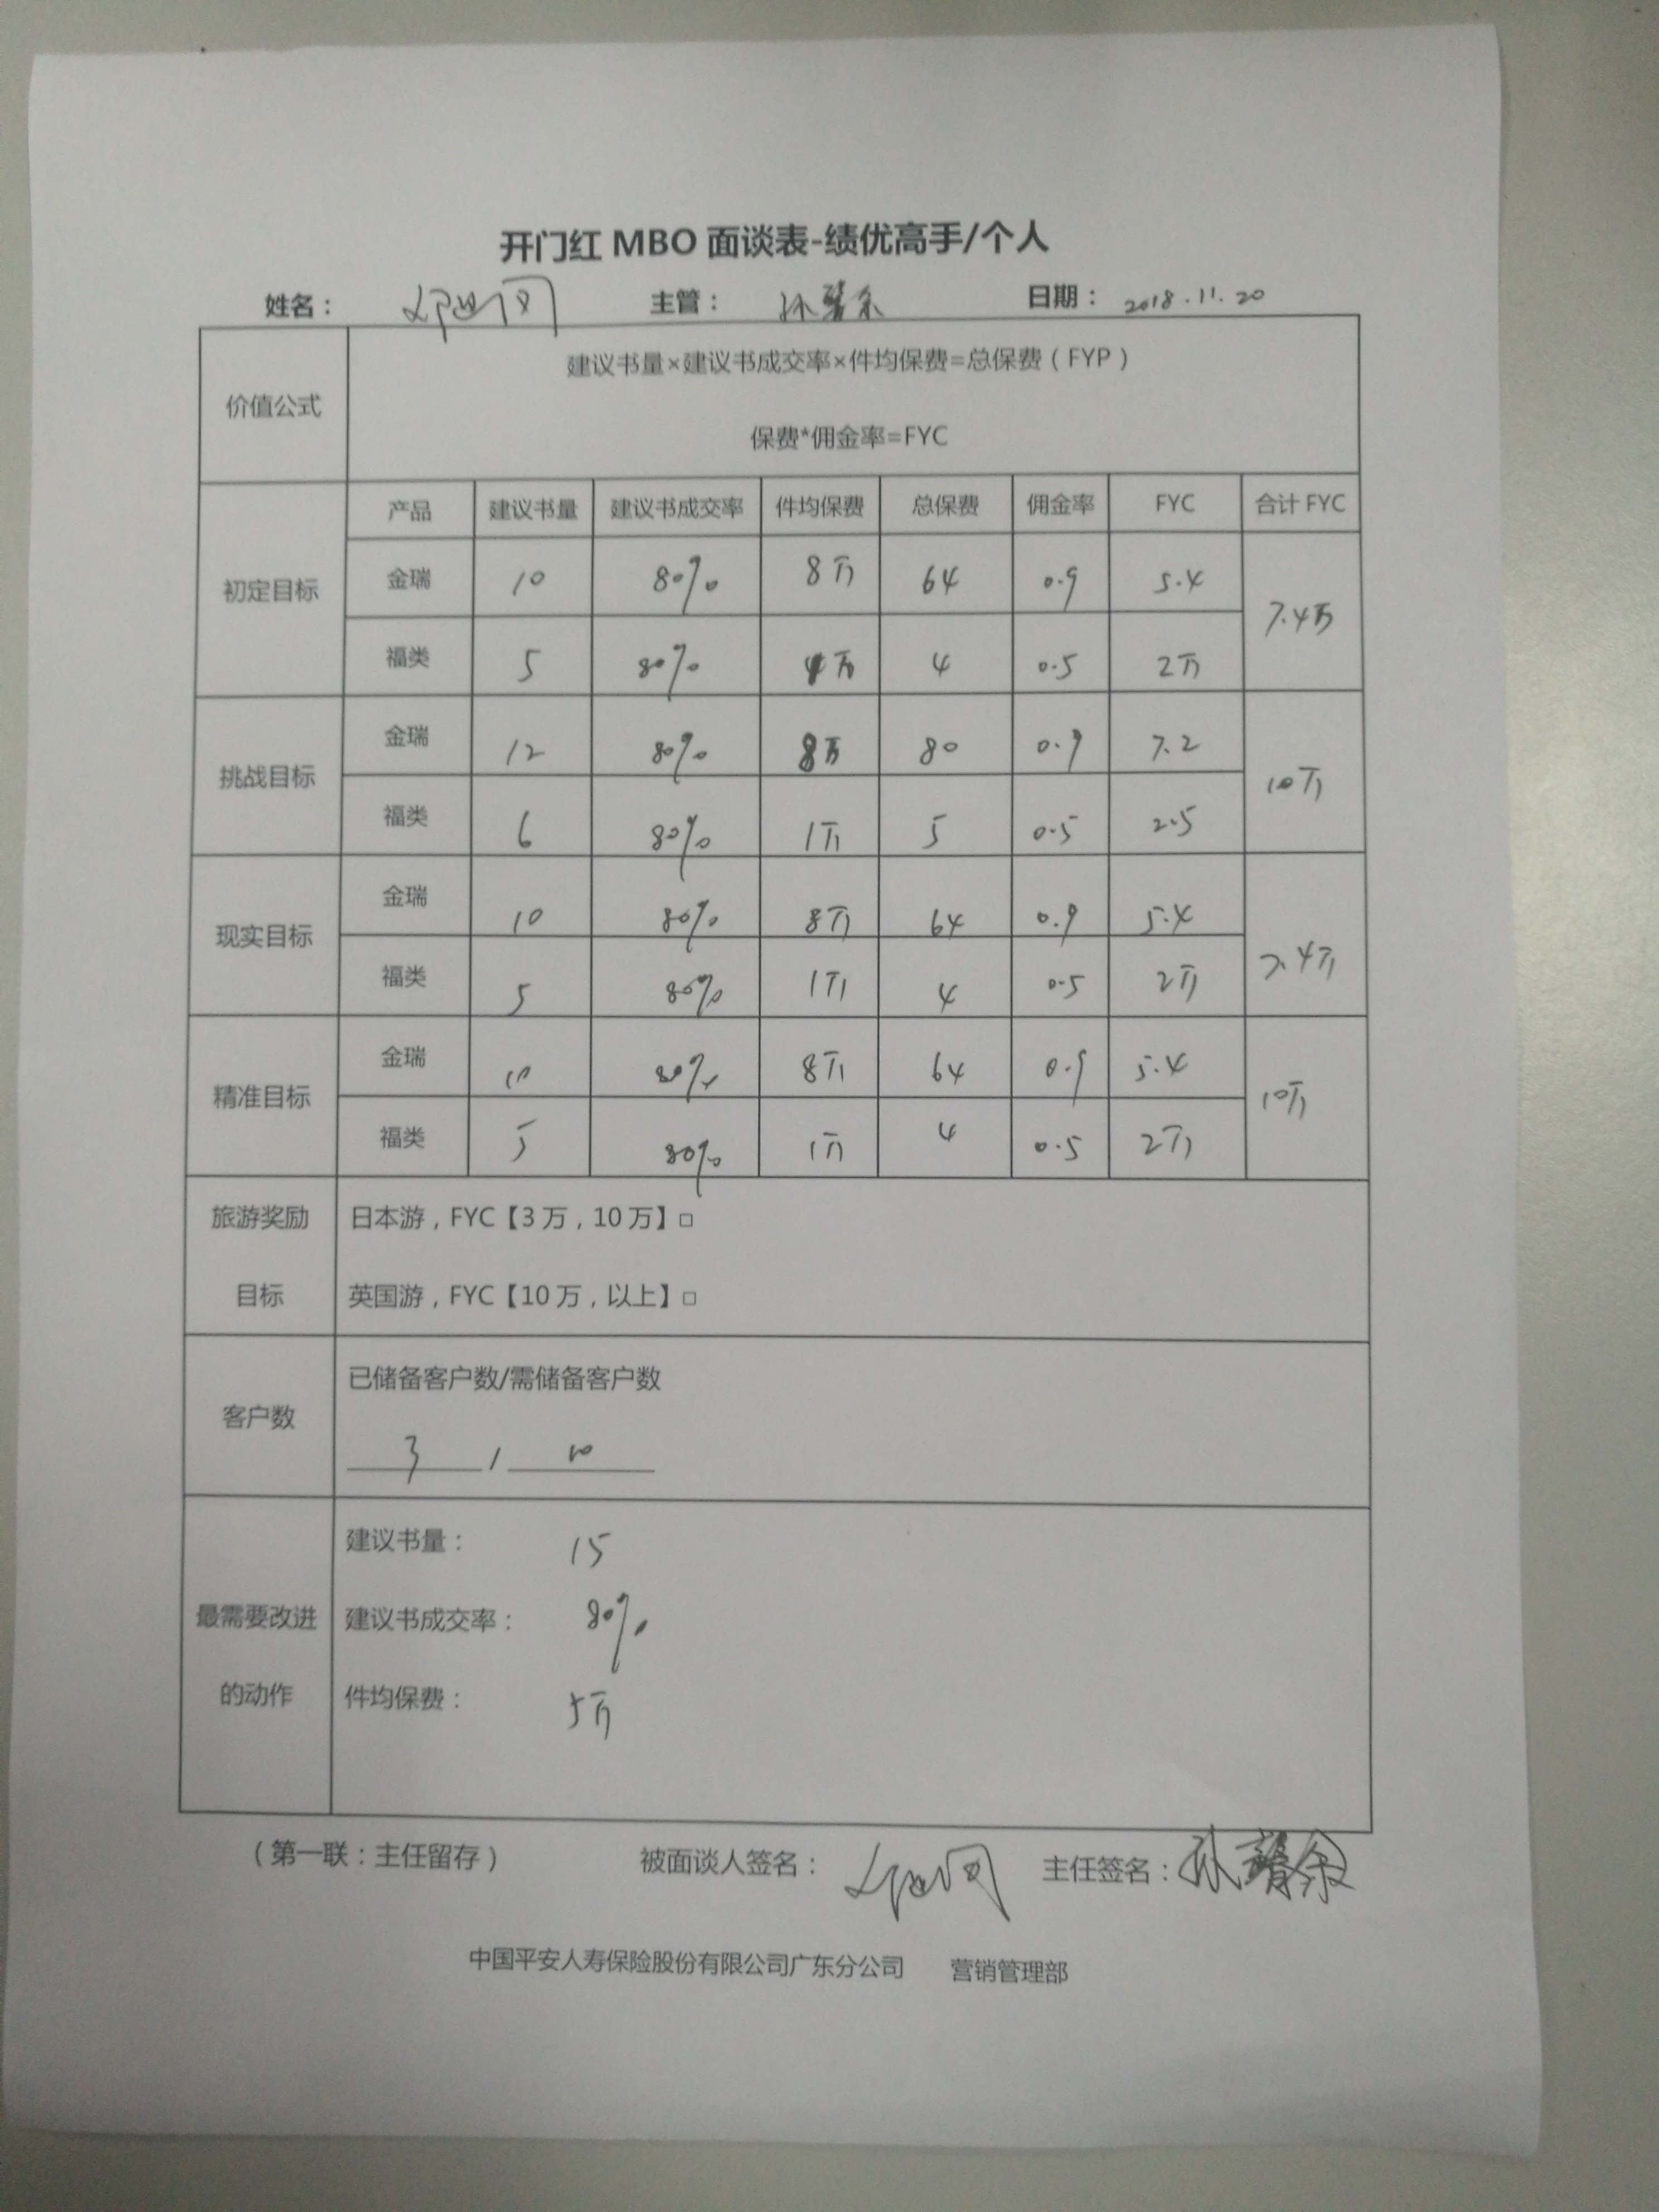 开门红 MBO 面谈表-绩优高手/个人
姓名： 主管： 孙馨余 日期： 2018.11.20
价值公式 建议书量×建议书成交率×件均保费=总保费（FYP）
保费*佣金率=FYC
产品 建议书量 建议书成交率 件均保费 总保费 佣金率 FYC 合计 FYC
初定目标 金瑞 10 80% 8万 64 0.9 5.4 7.4万
福类 5 80% 万 4 0.5 2万
挑战目标 金瑞 12 80% 8万 80 0.9 7.2 10万
福类 6 80% 1万 5 0.5 2.5
现实目标 金瑞 10 80% 8万 64 0.9 5.4 7.4万
福类 5 80% 1万 4 0.5 2万
精准目标 金瑞 10 80% 8万 64 0.9 5.4 10万
福类 5 80% 1万 4 0.5 2万
旅游奖励目标 日本游，FYC【3万，10万】□
英国游，FYC【10万，以上】□
客户数 已储备客户数/需储备客户数
3 / 10
最需要改进的动作 建议书量： 15
建议书成交率： 80%
件均保费： 5万
（第一联：主任留存） 被面谈人签名： 主任签名：孙馨余
中国平安人寿保险股份有限公司广东分公司 营销管理部